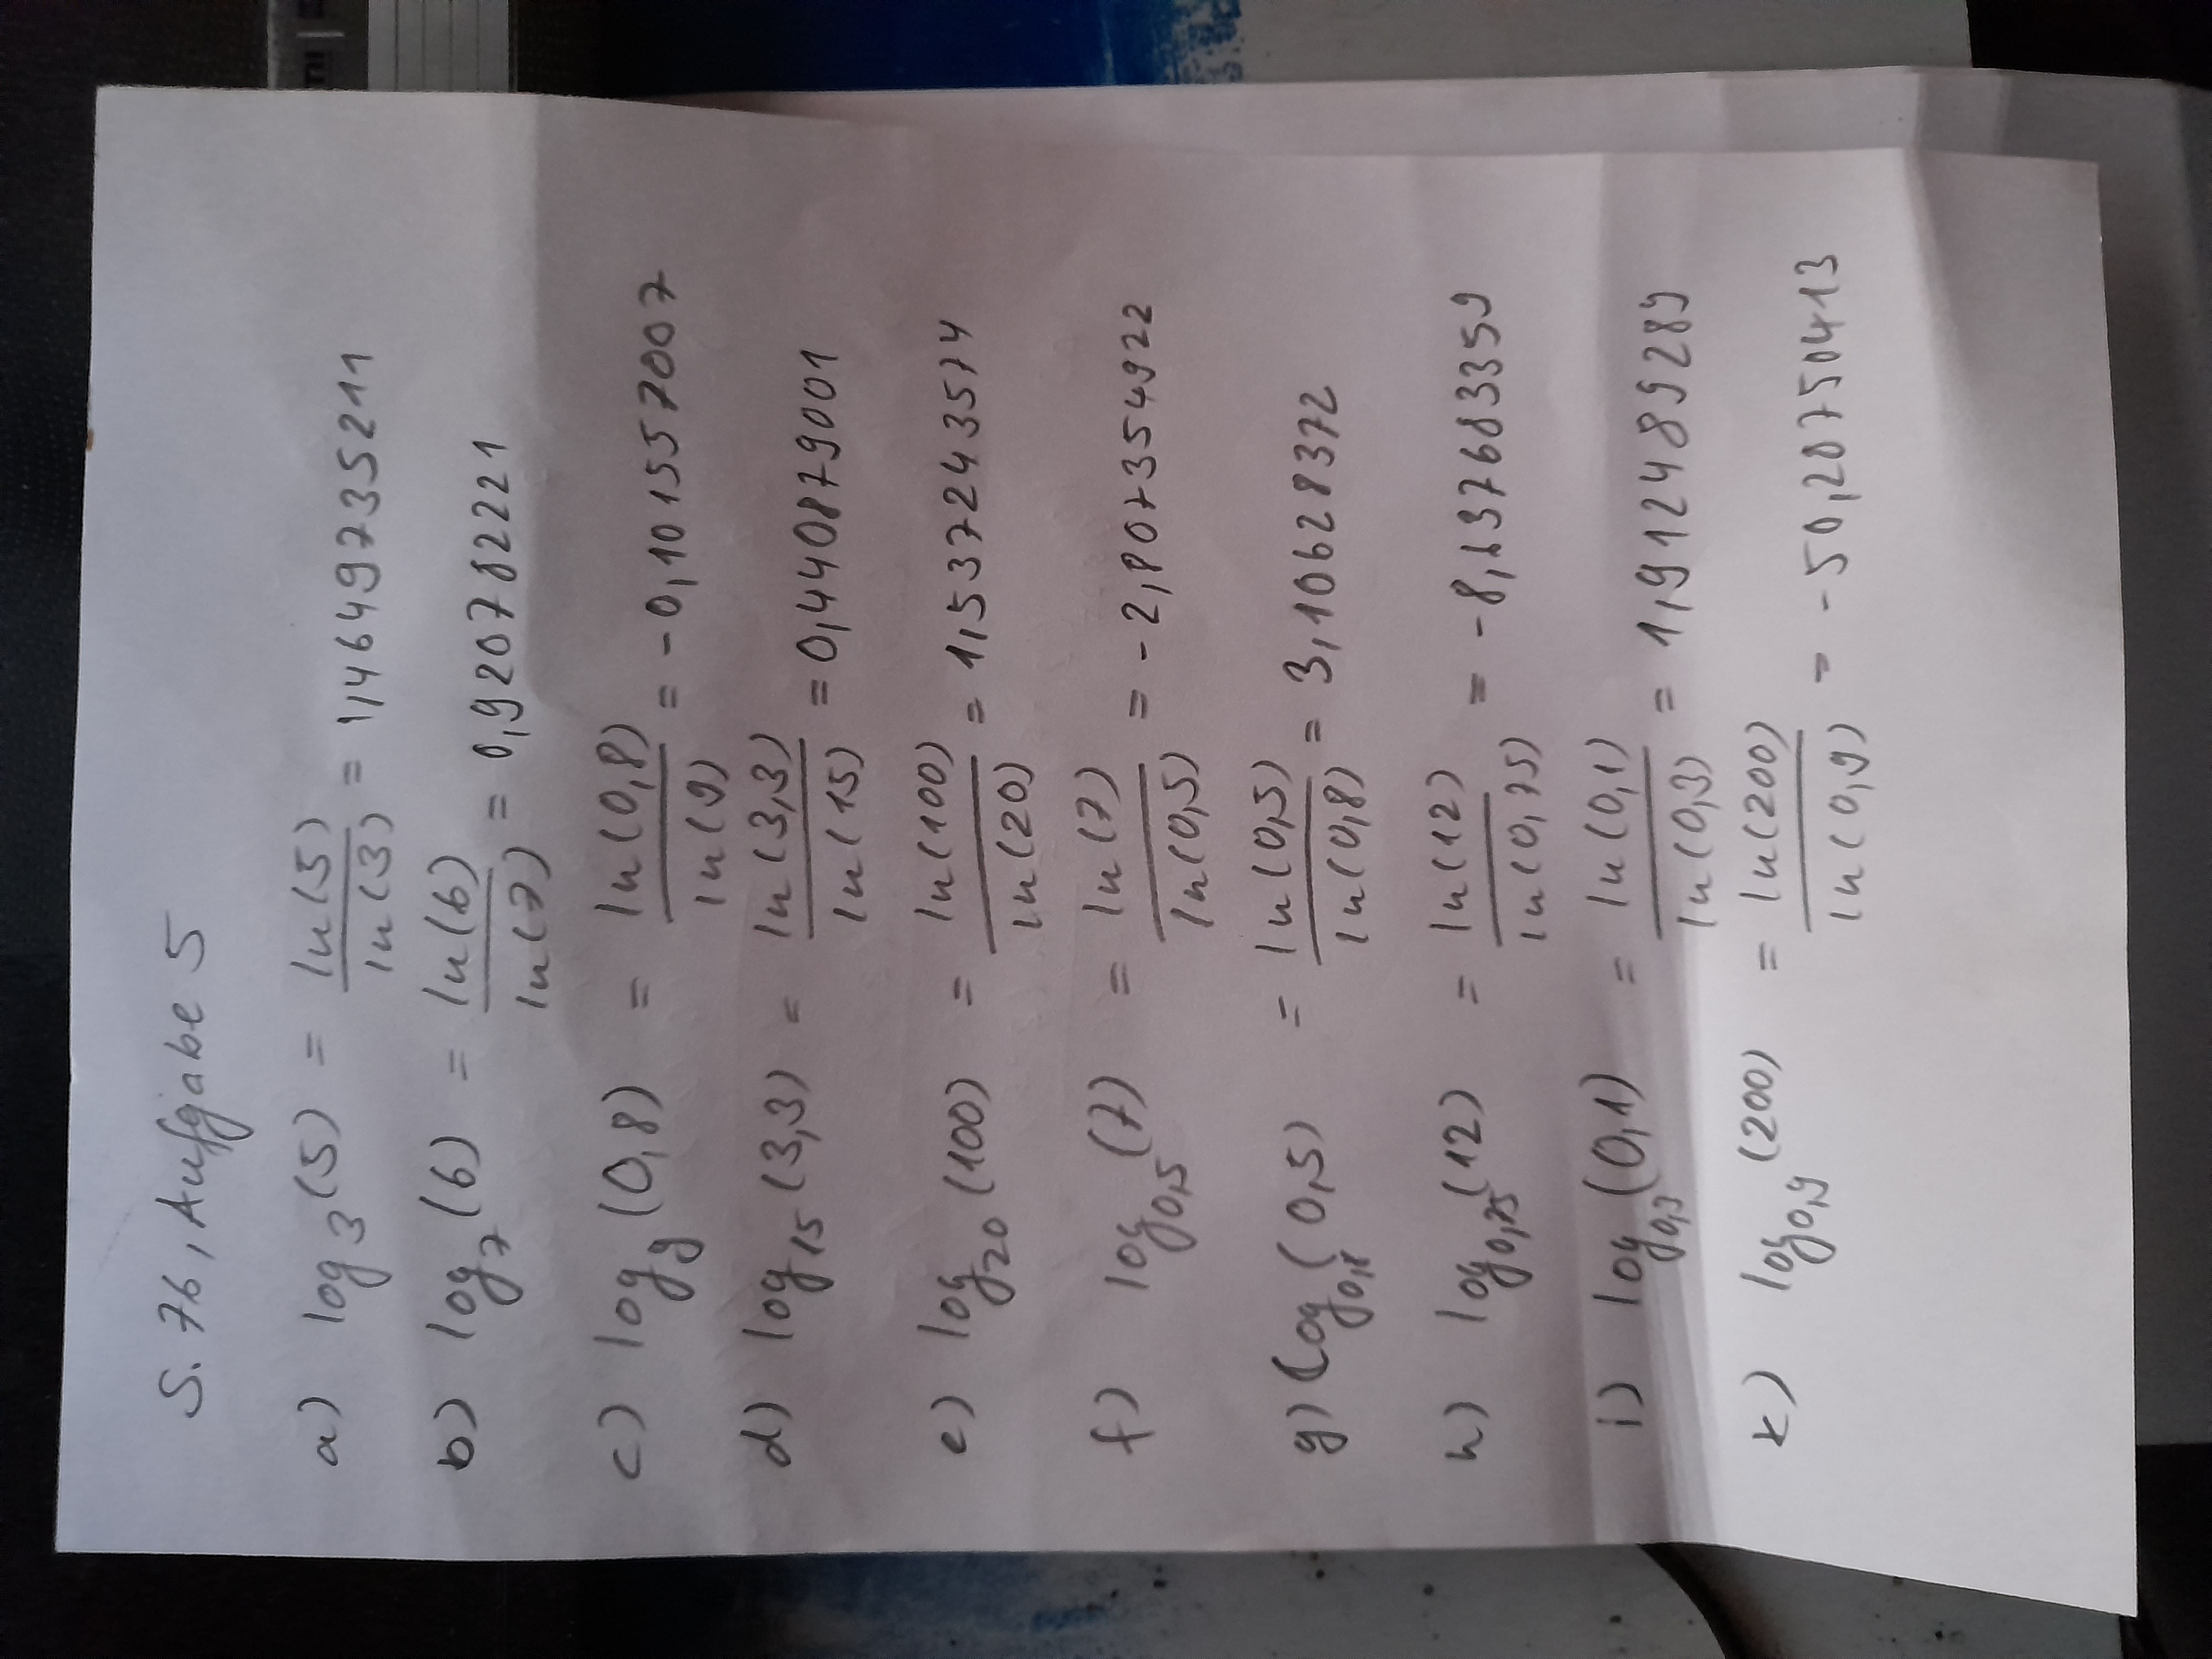 S. 76, Aufgabe 5
a) log₃(5) = ln(5)/ln(3) = 1,464973521 1
b) log₇(6) = ln(6)/ln(7) = 0,9207822 21
c) log₉(0,8) = ln(0,8)/ln(9) = -0,101557007
d) log₁₅(3,3) = ln(3,3)/ln(15) = 0,440879001
e) log₂₀(100) = ln(100)/ln(20) = 1,537243574
f) log₀,₅(7) = ln(7)/ln(0,5) = -2,807354922
g) log₀,₈(0,5) = ln(0,5)/ln(0,8) = 3,10628372
h) log₀,₇₅(12) = ln(12)/ln(0,75) = -8,637683359
i) log₀,₃(0,1) = ln(0,1)/ln(0,3) = 1,912489289
k) log₀,₉(200) = ln(200)/ln(0,9) = -50,28750413